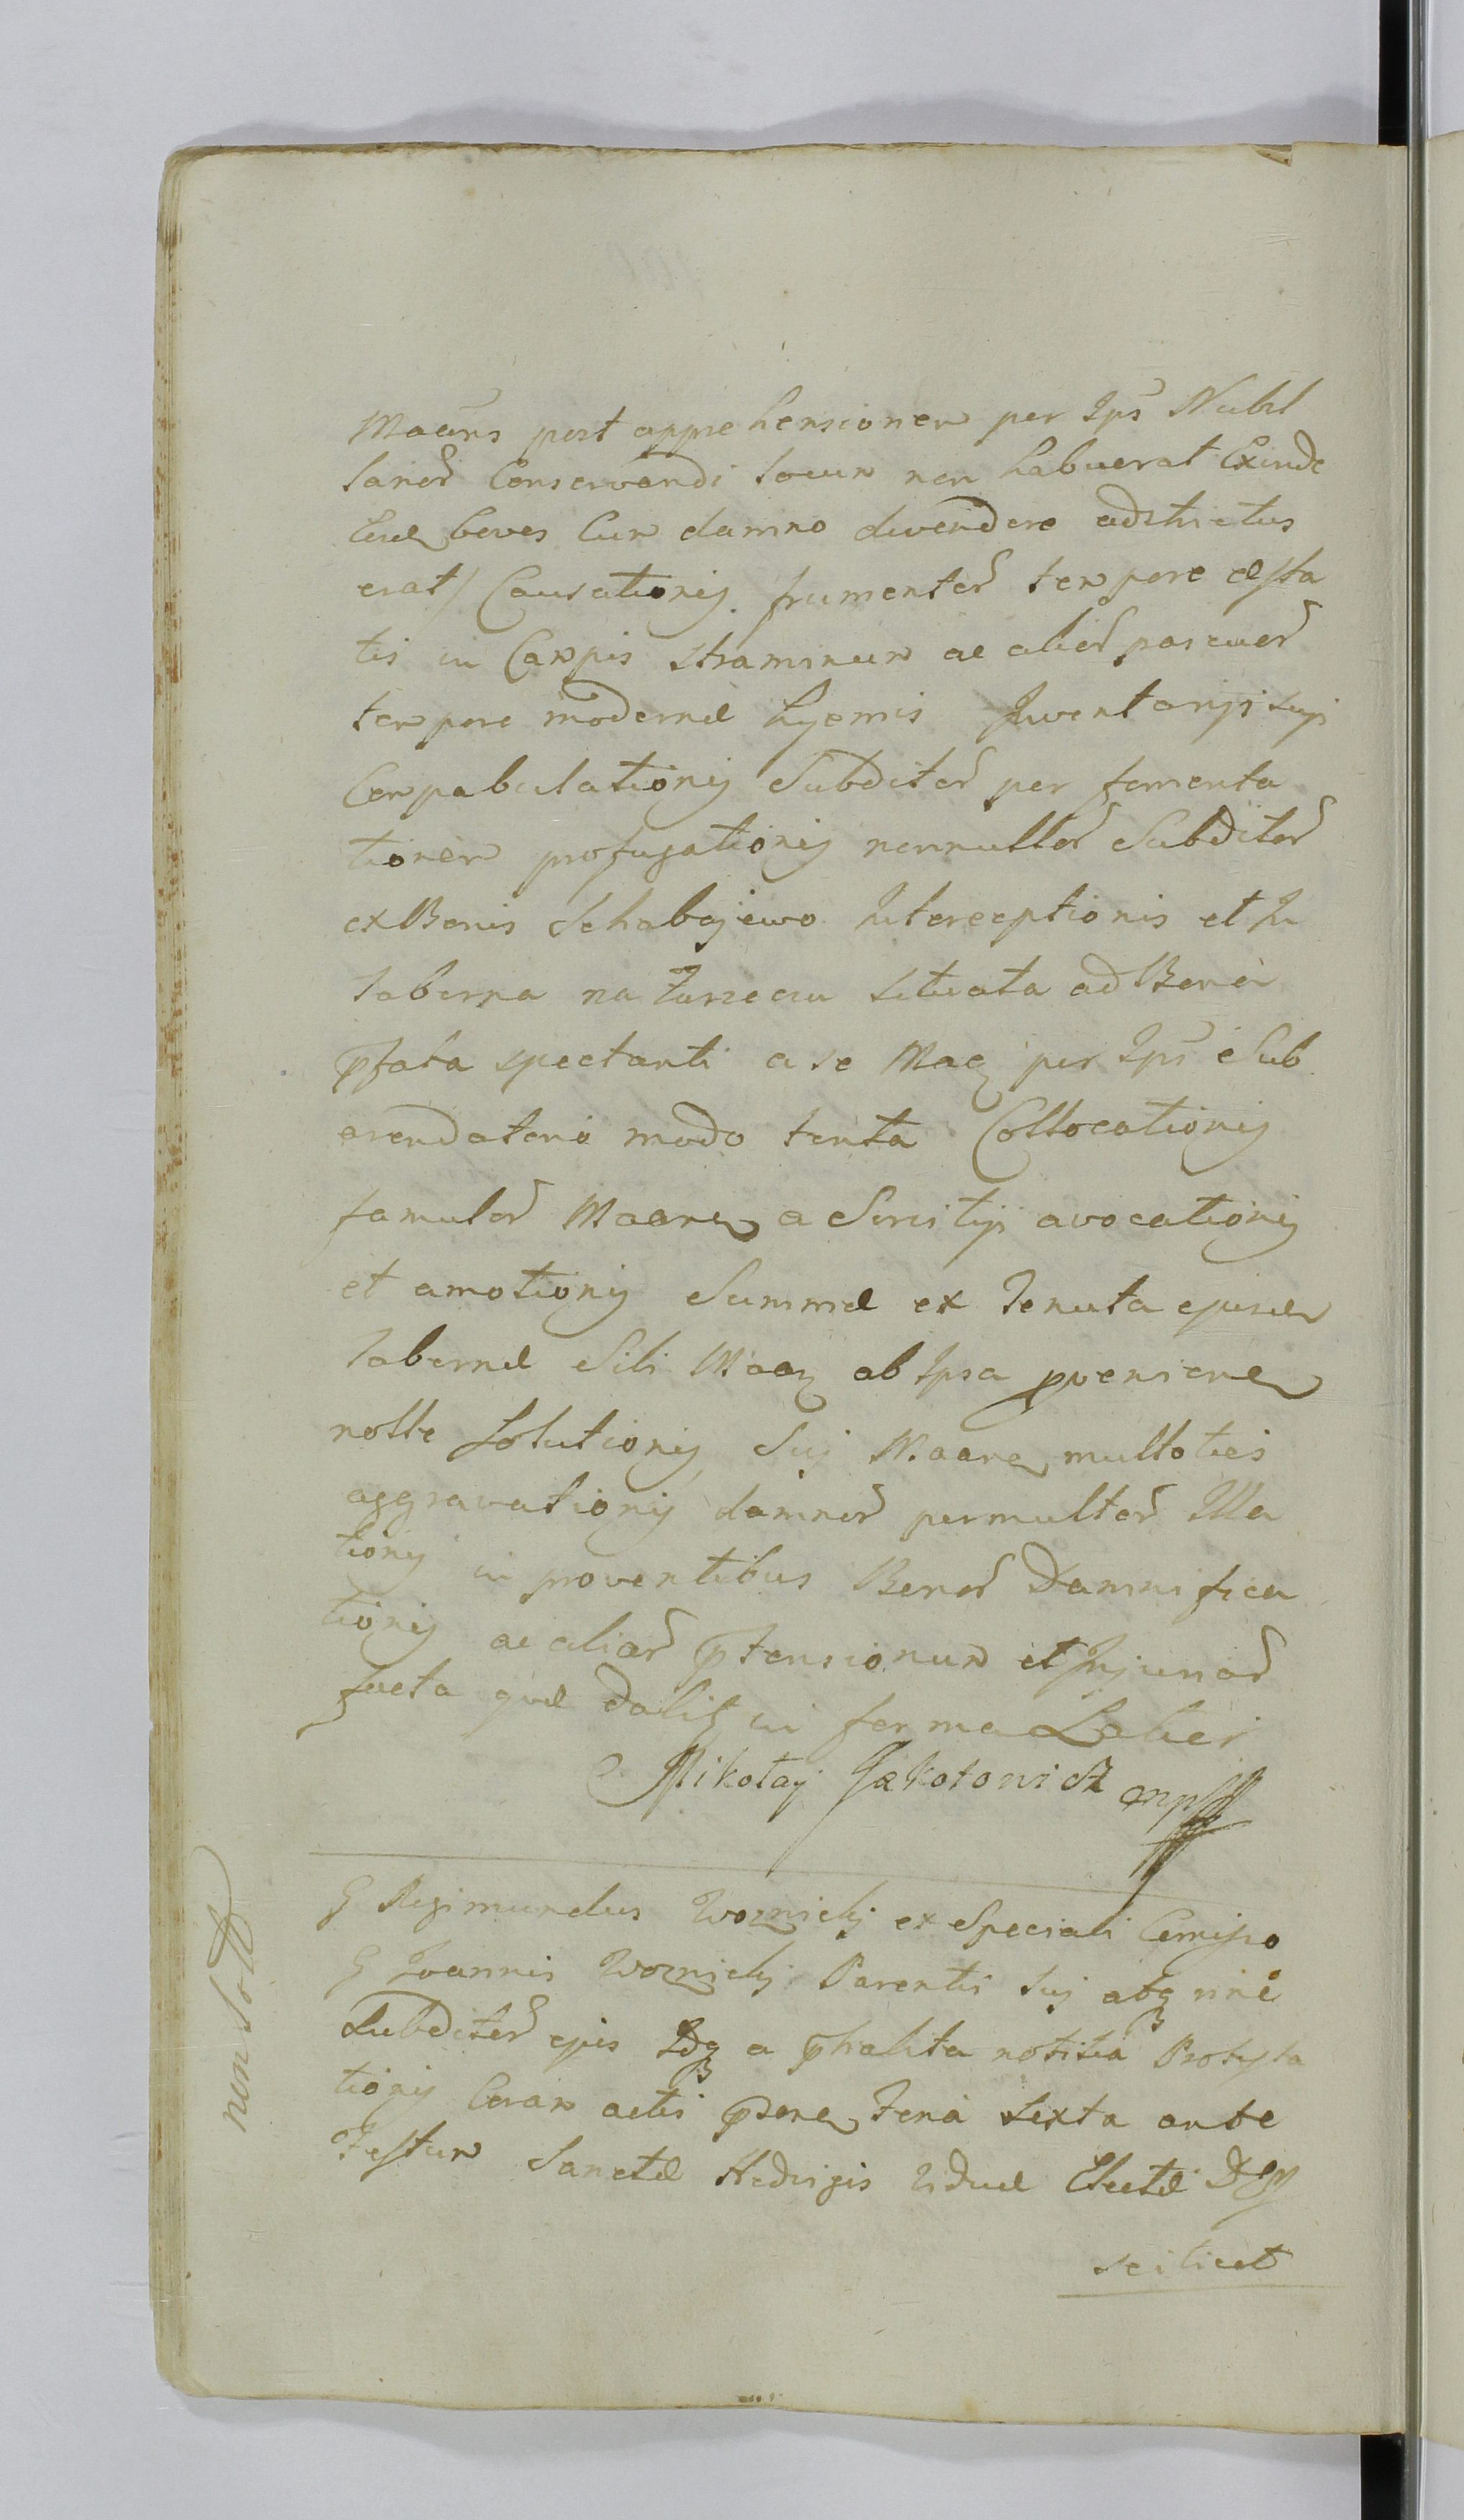 Maaris post apprehensionem per Ips Nubil
lanor Conservandi locum non habuerat Exinde
boves cum damno divendere adstrictus
erat/ Causationis frumentor tempore æsta
tis in Campis straminum ac alior pascuor
tempore modernæ hyemis Inventarysi
Compabulationis Subditor per fomenta
tionem profugationis nonnullor Subditor
ex Bonis Interceptionis et In
taberna na situata ad Bona
pfata spectanti a se Mag per Ips Sub
arendatorio modo tenta Collocationis
famulor Maare a Servitys avocationis
et amotionis Summæ ex tenuta ejusd
tabernæ Sibi Maaq ab Ipsa pvenien
nolle Solutionis Suj Maare multoties
aggravationis damnor permultor Illa
tionis in proventibus Bonor Damnifica
tionis ac aliar ptensionum et Injuriar
facta quæ in forma Lalior
Mikołaj mpp
G Regimundus Woznicky ex Speciali Comisso
G Joannis Woznicky Parentis Suj atq nõe
Subditor ejus Idq a phabita notitia Protesta
tionis Coram actis pson feria sexta ante
Festum Sanctæ Hedvigis Viduæ Electæ
scilicet
non soltt